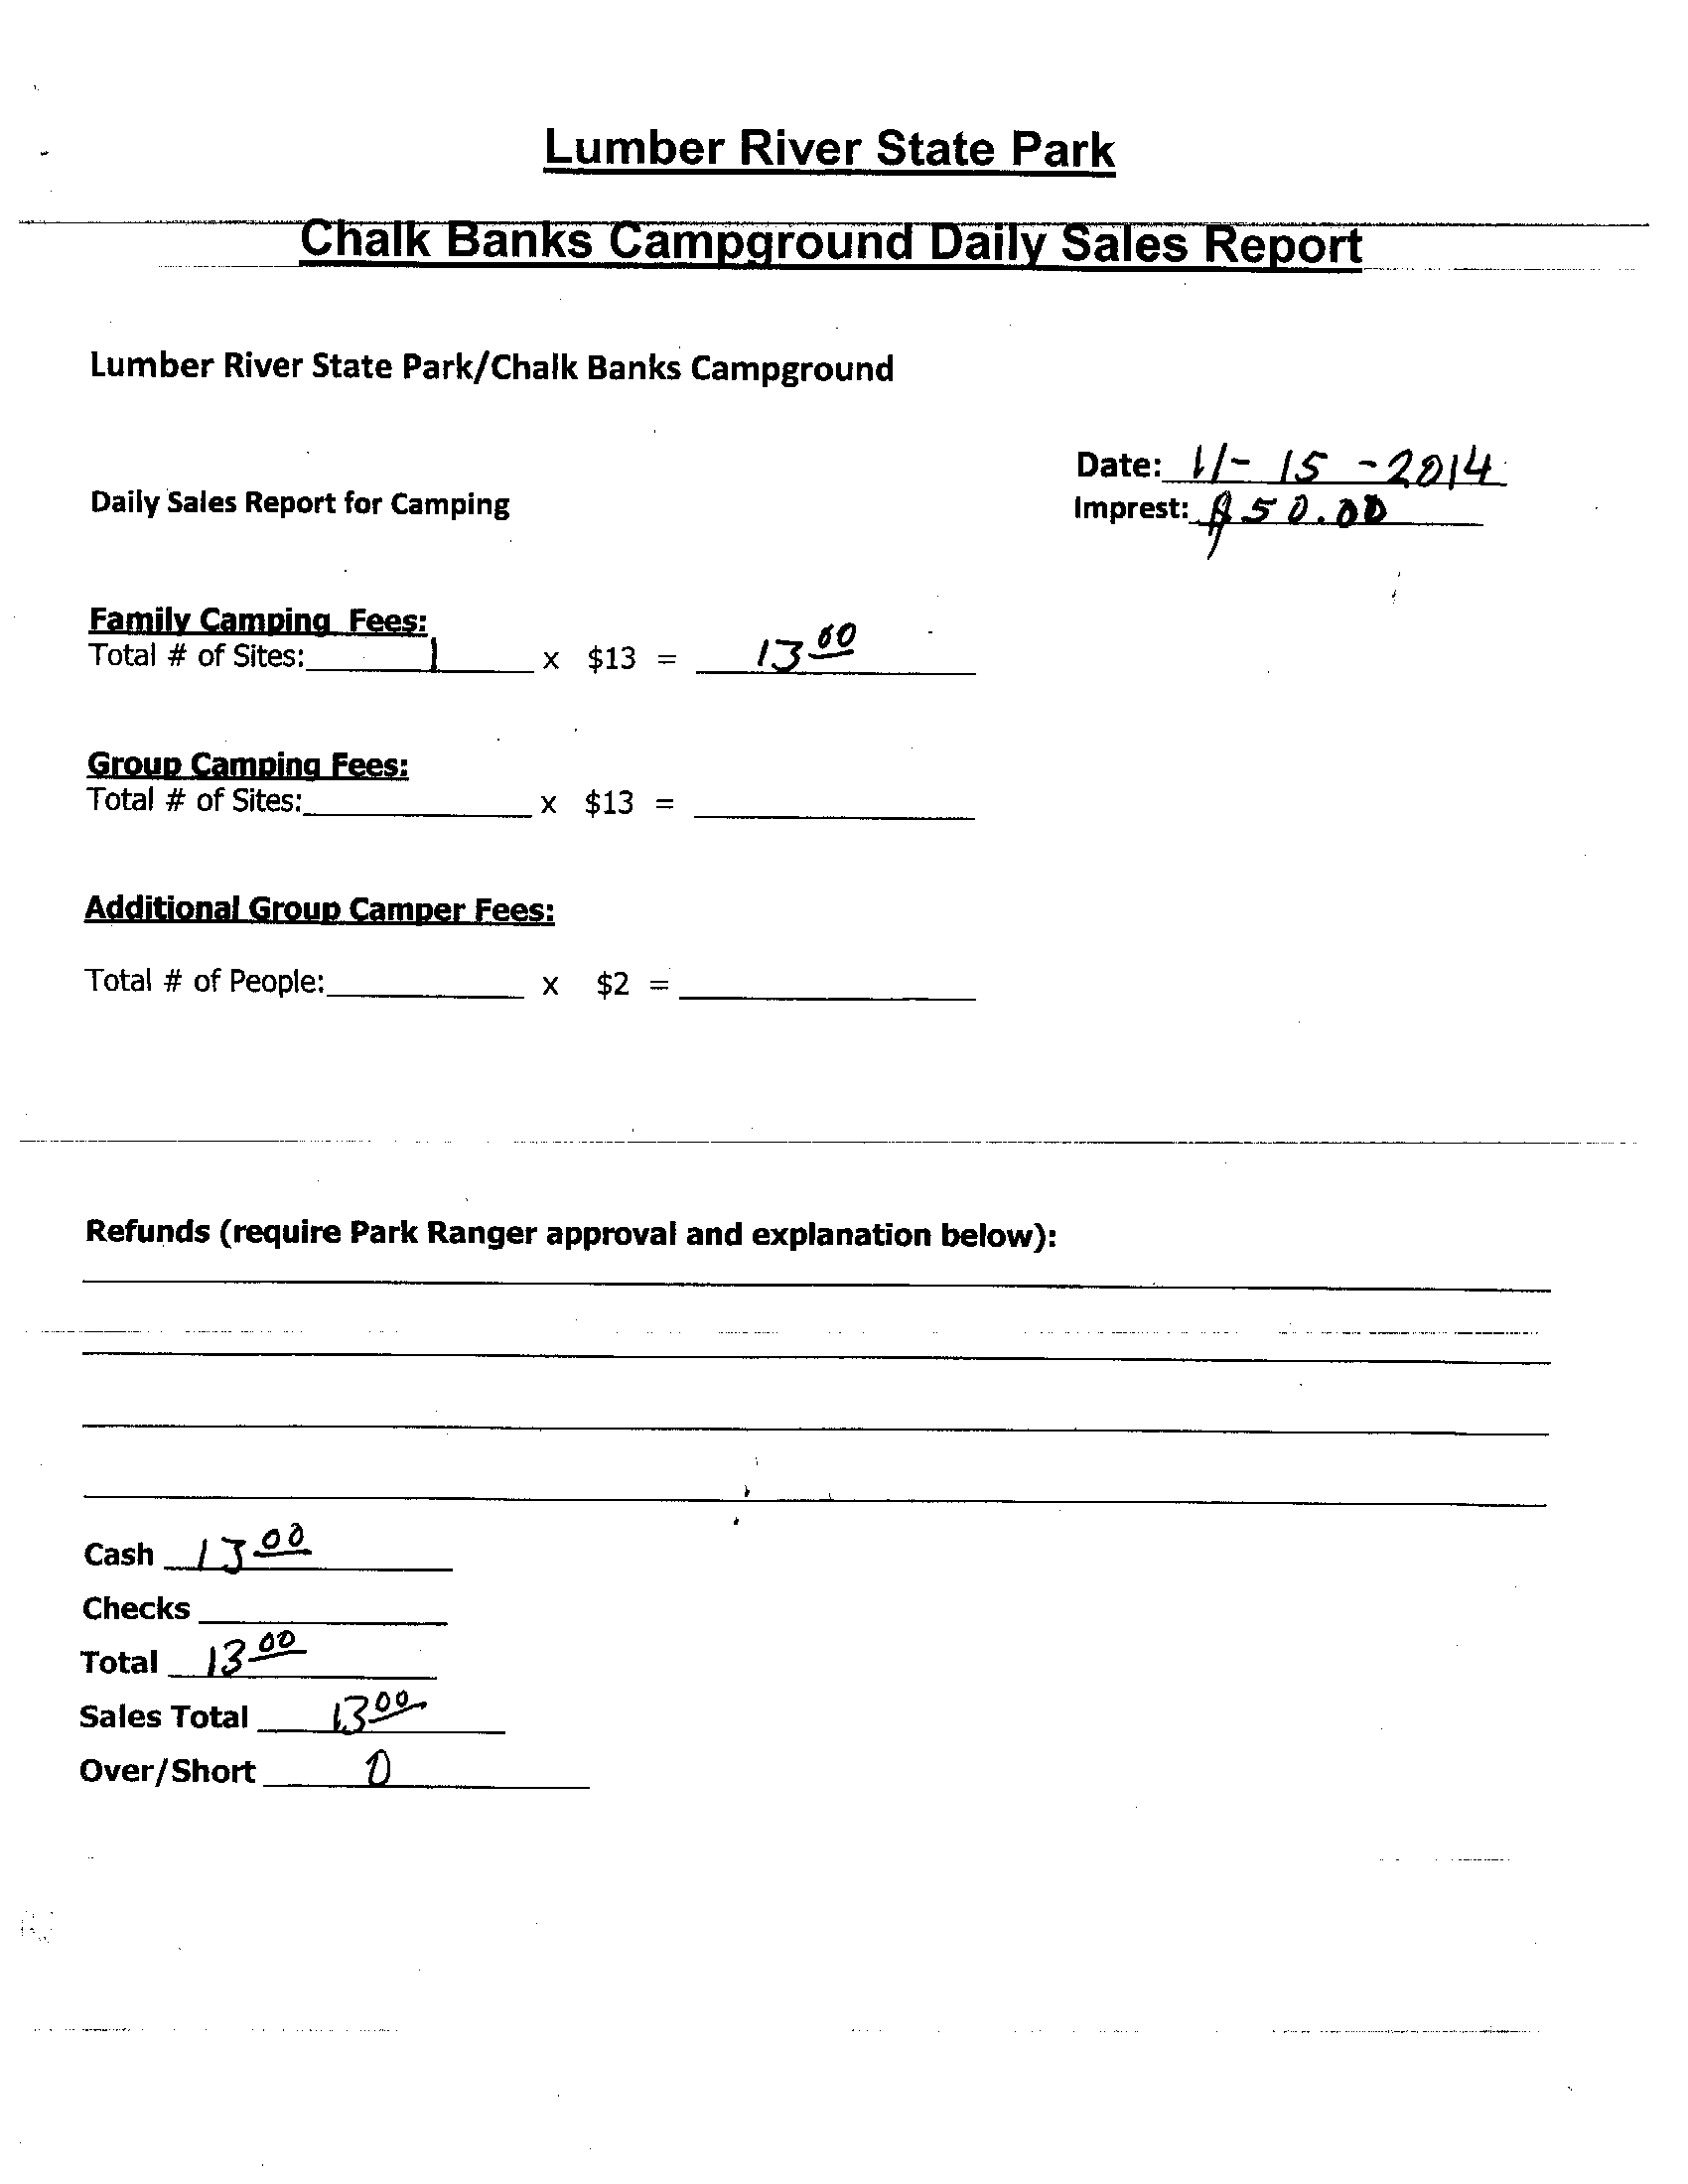 Lumber River State Park
Chalk Banks Campground Daily Sales Report
Lumber River State Park/Chalk Banks Campground
Date: 11-15-2014
Daily Sales Report for Camping
Imprest: $50.00
Family Camping Fees:
Total # of Sites: 1 x $13 = 13 00
Group Camping Fees:
Total # of Sites: x $13 =
Additional Group Camper Fees:
Total # of People: x $2 =
Refunds (require Park Ranger approval and explanation below):
Cash 13 00
Checks
Total 13 00
Sales Total 13 00
Over/Short 0